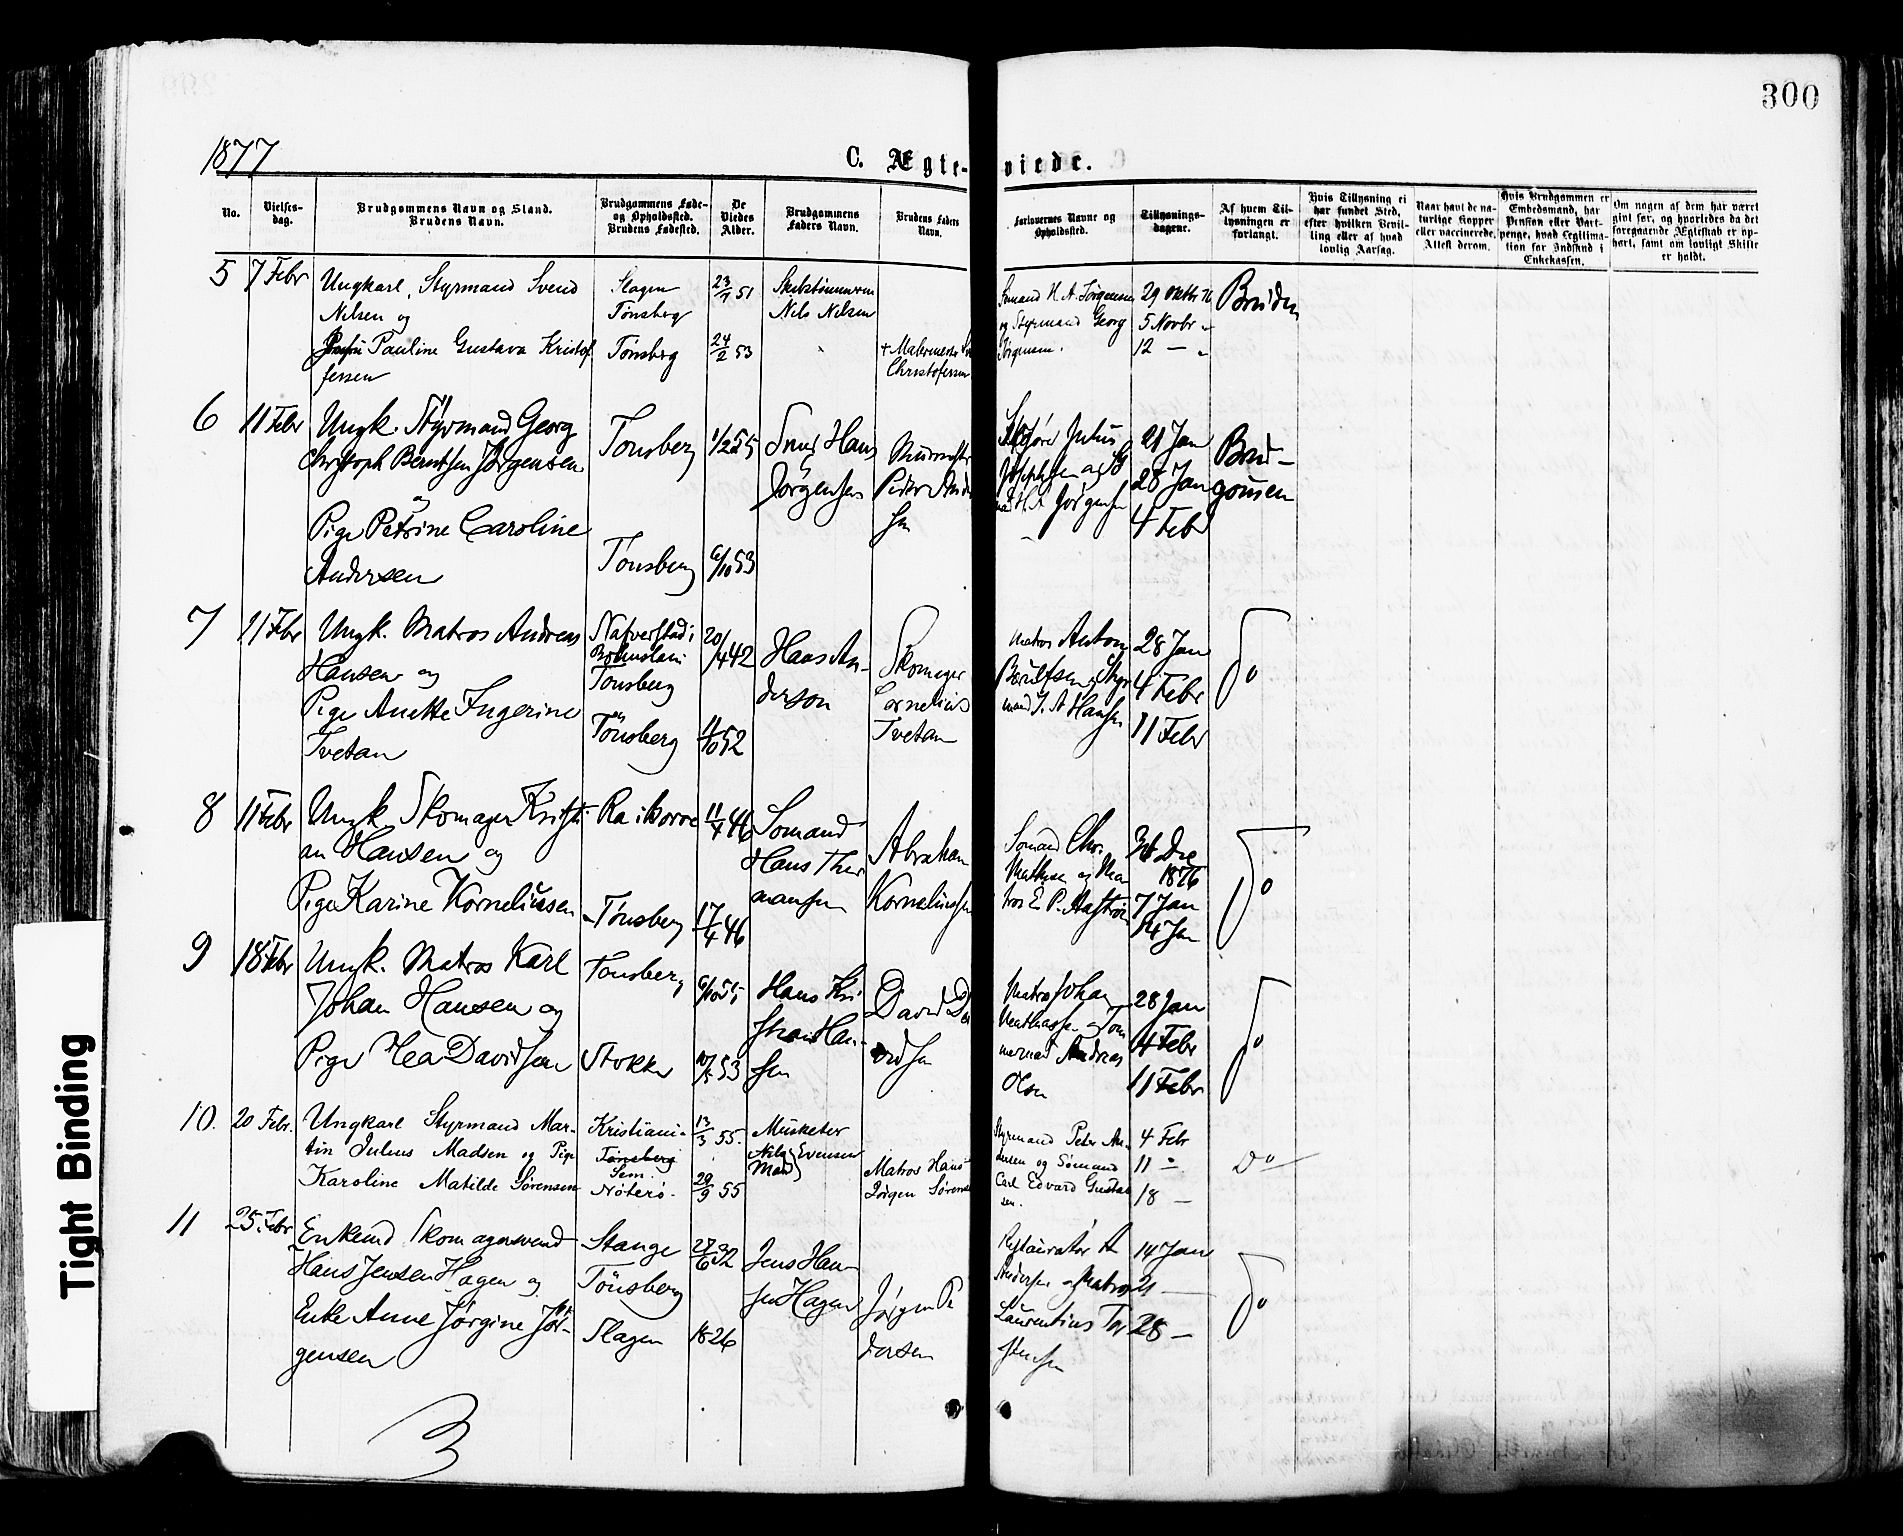 300
1877
C. Ægte-viede.
No.
Vielses-dag.
Brudgommens Navn og Stand.
Brudens Navn.
Brudgommens Føde- og Opholdssted.
Brudens Fødested.
De Viedes Alder.
Brudgommens Faders Navn.
Brudens Faders Navn.
Forlovernes Navne og Opholdssted.
Tillysnings-dagene.
Af hvem Til-lysningen er forlangt.
Hvis Tillysning ei har fundet Sted, efter hvilken Bevil-ling eller af hvad lovlig Aarsag.
Naar havt de na-turlige Kopper eller vaccinerede, Attest derom.
Hvis Brudgommen er Embedsmand, har Pension eller Vart-penge, hvad Legitima-tion for Indskud i Enkekassen.
Om nogen af dem har været givt før, og hvorledes da det foregaaende Ægteskab er op-hørt, samt om lovligt Skifte er holdt.
5 7 Febr Ungkarl, Styrmand Svend
Nilsen og
Pauline Gustava Kristof
fersen
Slagen
Tønsberg
Tønsberg
23/7 51
24/2 53
Skibstømmerm
Nils Nilsen
+ Malermester
Christofersen
Sømand H. A. Jørgensen
og Styrmand Georg
Jørgensen.
29 Oktbr 76
5 Novbr "
12 — "
Bruden
6 11 Febr Ungk. Styrmand Georg
Christoph Berntsen Jørgensen
og
Pige Petrine Caroline
Andersen
Tonsberg
Tonsberg
1/2 55
6/10 53
Smed Hans
Jørgensen
Murmester
Peder Ander
sen
Julius
Josephsen og
H. A Jørgensen
21 Jan
28 Jan
4 Febr
Brud-
gomen
7 11 Febr Ungk. Matros Andreas
Hansen og
Pige Anette Ingerine
Tvetan
Nafverstad i
Bohuslän
Tønsberg
Tönsberg
20/4 42
11/10 52
Hans An-
derson
Skomager
Cornelius
Tvetan
Matros Anton
Berntsen, Styr
mand J. A Hansen
28 Jan
4 Febr
11 Febr
Do
8 11 Febr Ungk Skomager Kristi-
an Hansen og
Pige Karine Korneliussen
Ra i Borre
Tønsberg
11/4 46
17/4 46
Sømand
Hans Ther
mansen
Abraham
Korneliussen
Sømand Chr.
Mathisen og Ma
tros E. P. Aastrøm
31 Dec
1876
7 Jan
14 Jan
Do
9 18 Febr Ungk. Matros Karl
Johan Hansen og
Pige Hea Davidsen
Tonsberg
Stokke
6/10 51
10/5 53
Hans Kri
stian Han-
sen
David Da
vidsen
Matros Johan
Mathiassen og Tøm
mermand Andreas
Olsen
28 Jan
4 Febr
11 Febr
Do
10. 20 Febr. Ungkarl Styrmand Mar-
tin Julius Madsen og Pige
Karoline Matilde Sørensen
Kristiania
Tønsberg
Sem.
Nøterø.
13/3 55.
29/9 55
Musketer
Nils Evensen
Mads
Matros Hans
Jørgen Sørensen
Styrmand Peter An-
dersen og Sømand
Carl Edvard Gustav
sen.
4 Febr
11 "
18 —
Do
11 25 Febr Enkemd Skomagersvend
Hans Jensen Hagen og
Enke Anne Jørgine Jør-
gensen
Stange
Tönsberg
Slagen
27/6 32
1826
Jens Han
sen Hagen
Jørgen Pe
dersen
Restauratør A
Andersen og Matros
Laurentius Tor
stensen
14 Jan
21 —
28 —
Do
Tight Binding